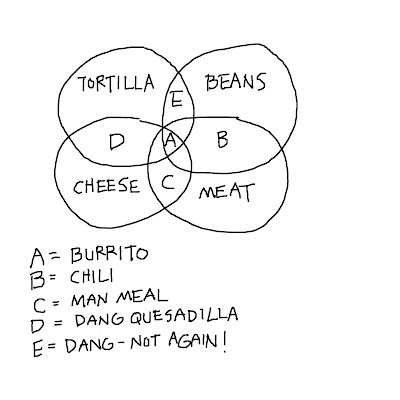 TORTILLA
BEANS
E
D
A
B
CHEESE
C
MEAT
A = BURRITO
B = CHILI
C = MAN MEAL
D = DANG QUESADILLA
E = DANG - NOT AGAIN!